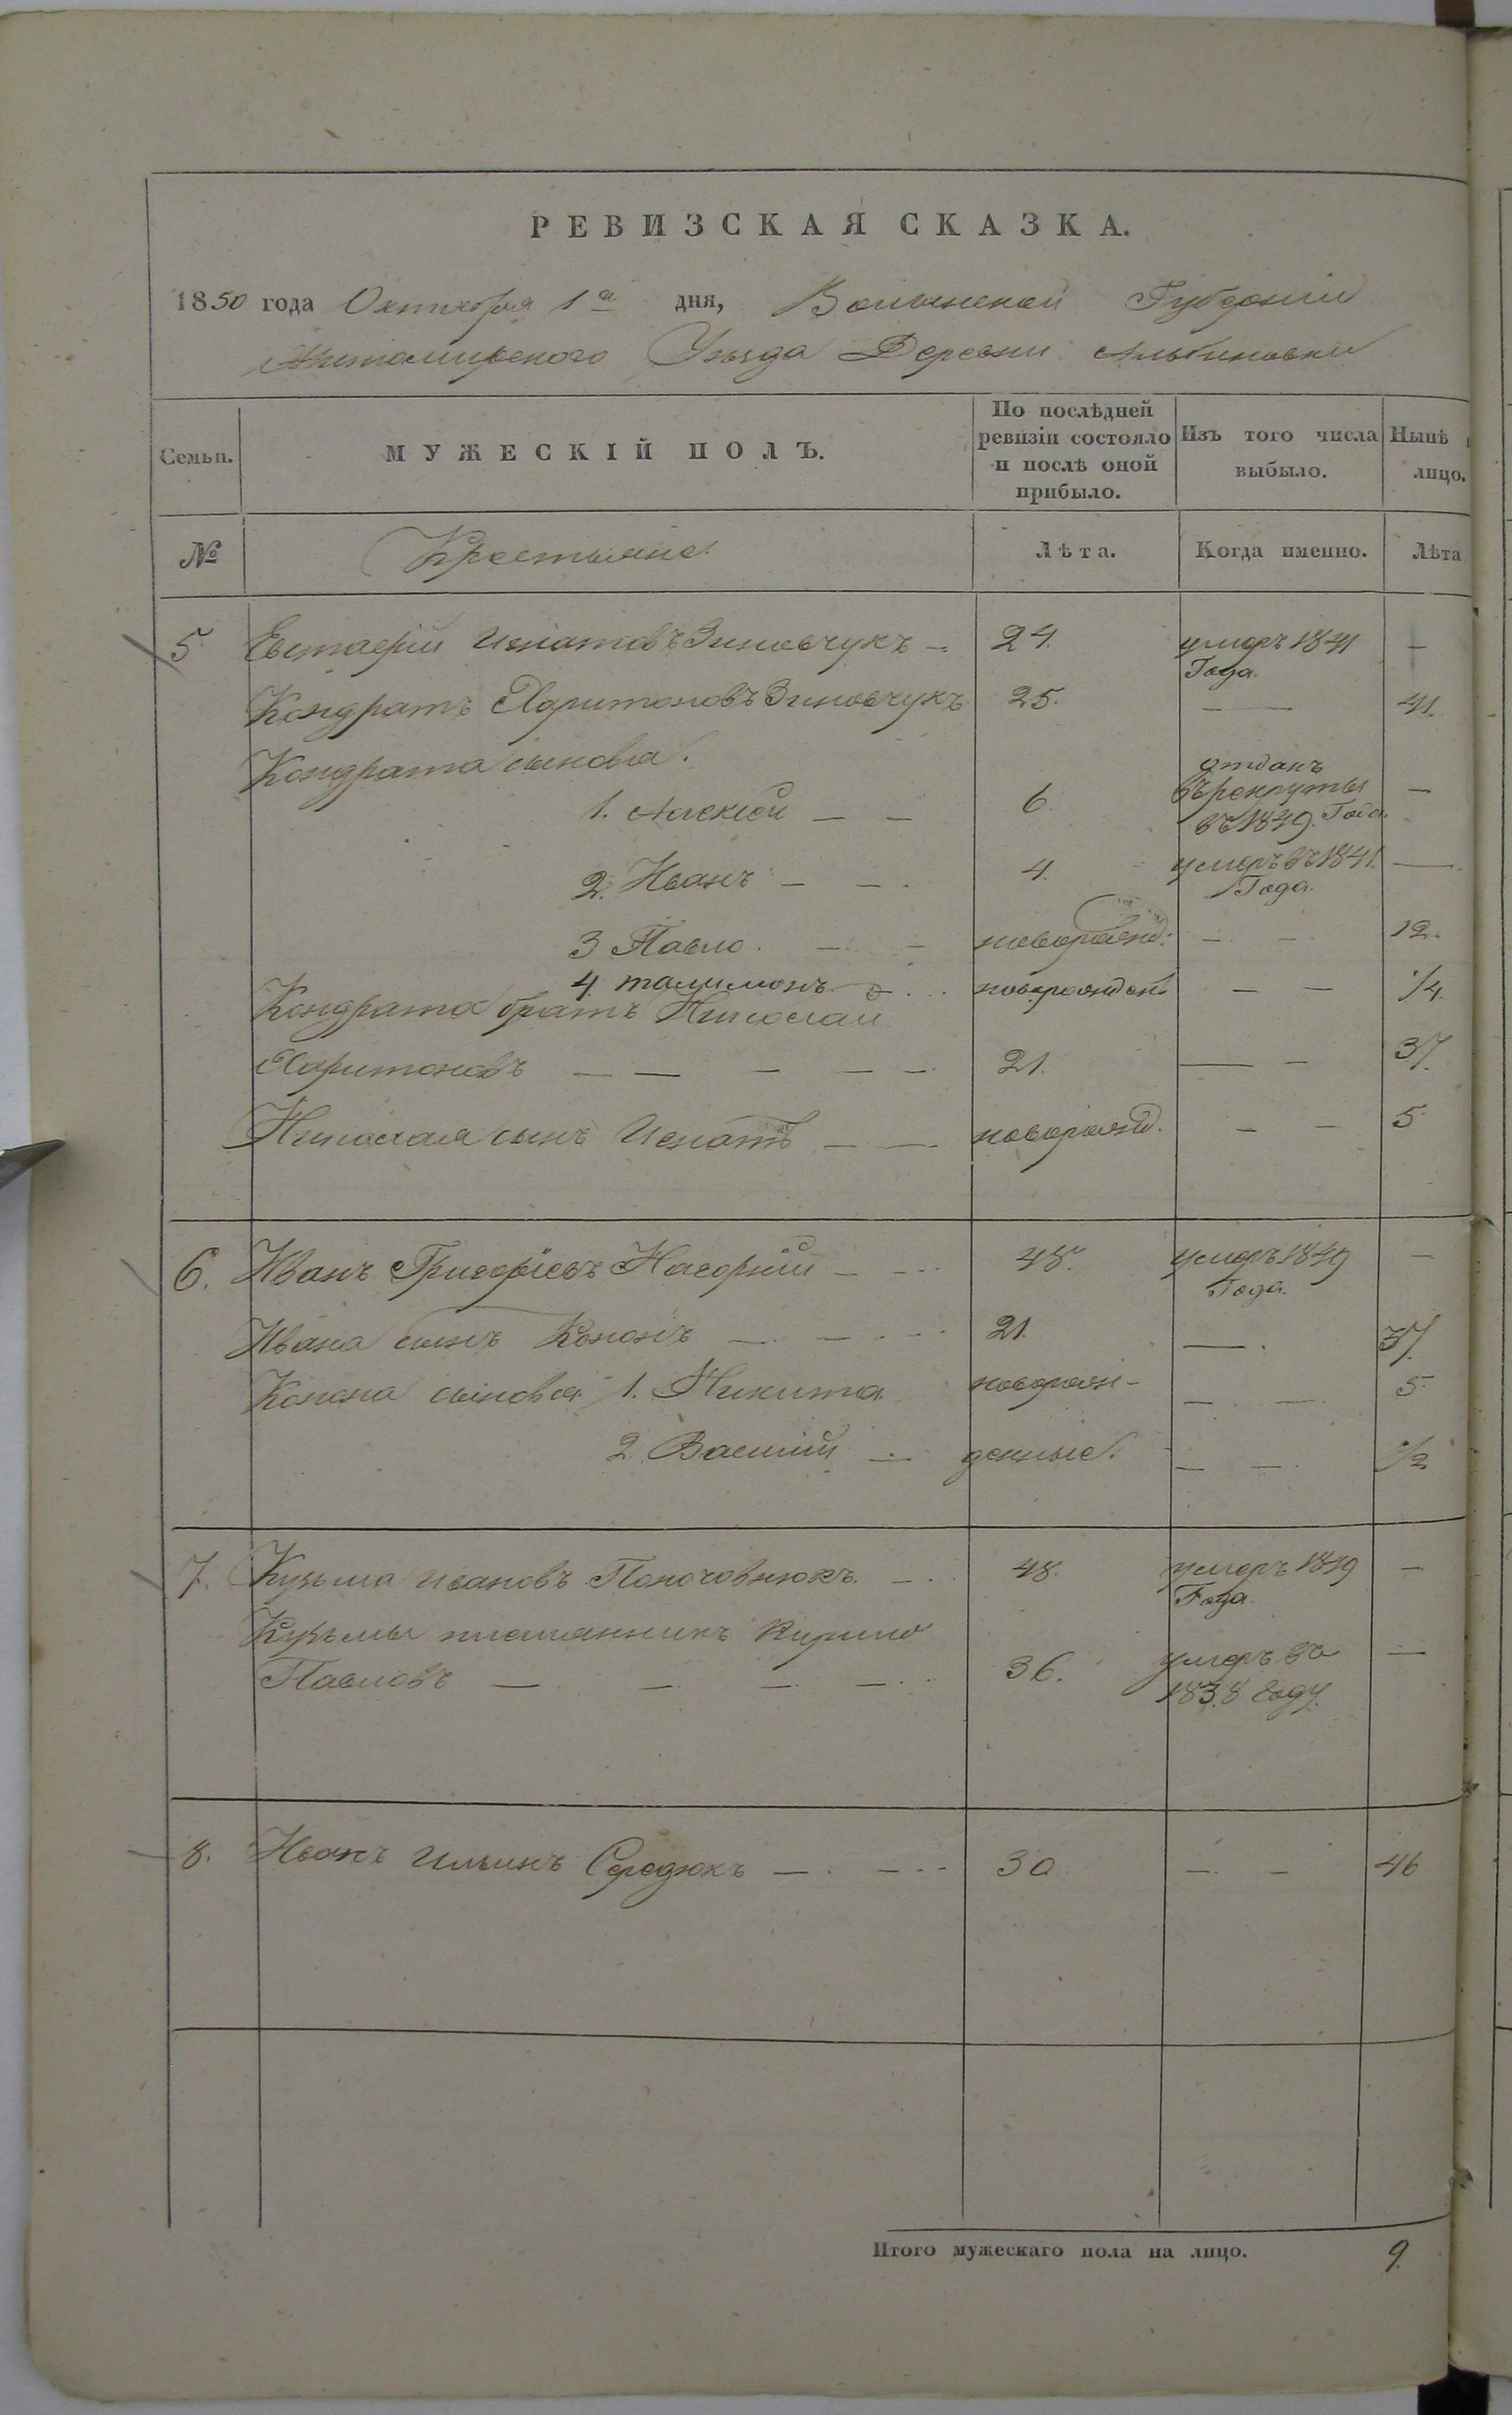 РЕВИЗСКАЯ СКАЗКА.
1850 года Октября 1го дня, Волынской Губерніи
Житомирского Уезда Деревни Альбиновки
Семьи. МУЖЕСКІЙ ПОЛЪ. По послѣдней ревизіи состояло и послѣ оной прибыло. Изъ того числа выбыло. Нынѣ лицо.
№ Крестьяне. Лѣта. Когда именно. Лѣта
5 Евстафій Игнатовъ Зиновчукъ — 24. умеръ 1841 Года. —
Кондратъ Харитоновъ Зиновчукъ 25. — 41.
Кондрата сыновья.
1. Алексей — — 6. отданъ въ рекруты въ 1849. Года. —
2. Иванъ — — 4. умеръ въ 1841. Года. —
3 Павло. — — новорожд: — — 12.
4. талимонъ — новорожден — — 1/4
Кондрата братъ Николай
Харитоновъ — — — — — 21. — — 37.
Николая сынъ Игнатъ — — новорожд. — — 5
6. Иванъ Григорьевъ Нагорній — — 48. умеръ 1849 Года. —
Ивана сынъ Кононъ — — 21. — 37.
Конона сыновья 1. Никита новорож- — — 5
2. Василій — денные. — — 1/2
7. Кузьма Ивановъ — 48. умеръ 1849 Года. —
Кузьмы племянникъ Кирило
Павловъ — — — — 36. умеръ въ 1838 Году. —
8. Иванъ Ильинъ Середюкъ — — 30 — — 46
Итого мужескаго пола на лицо. 9.